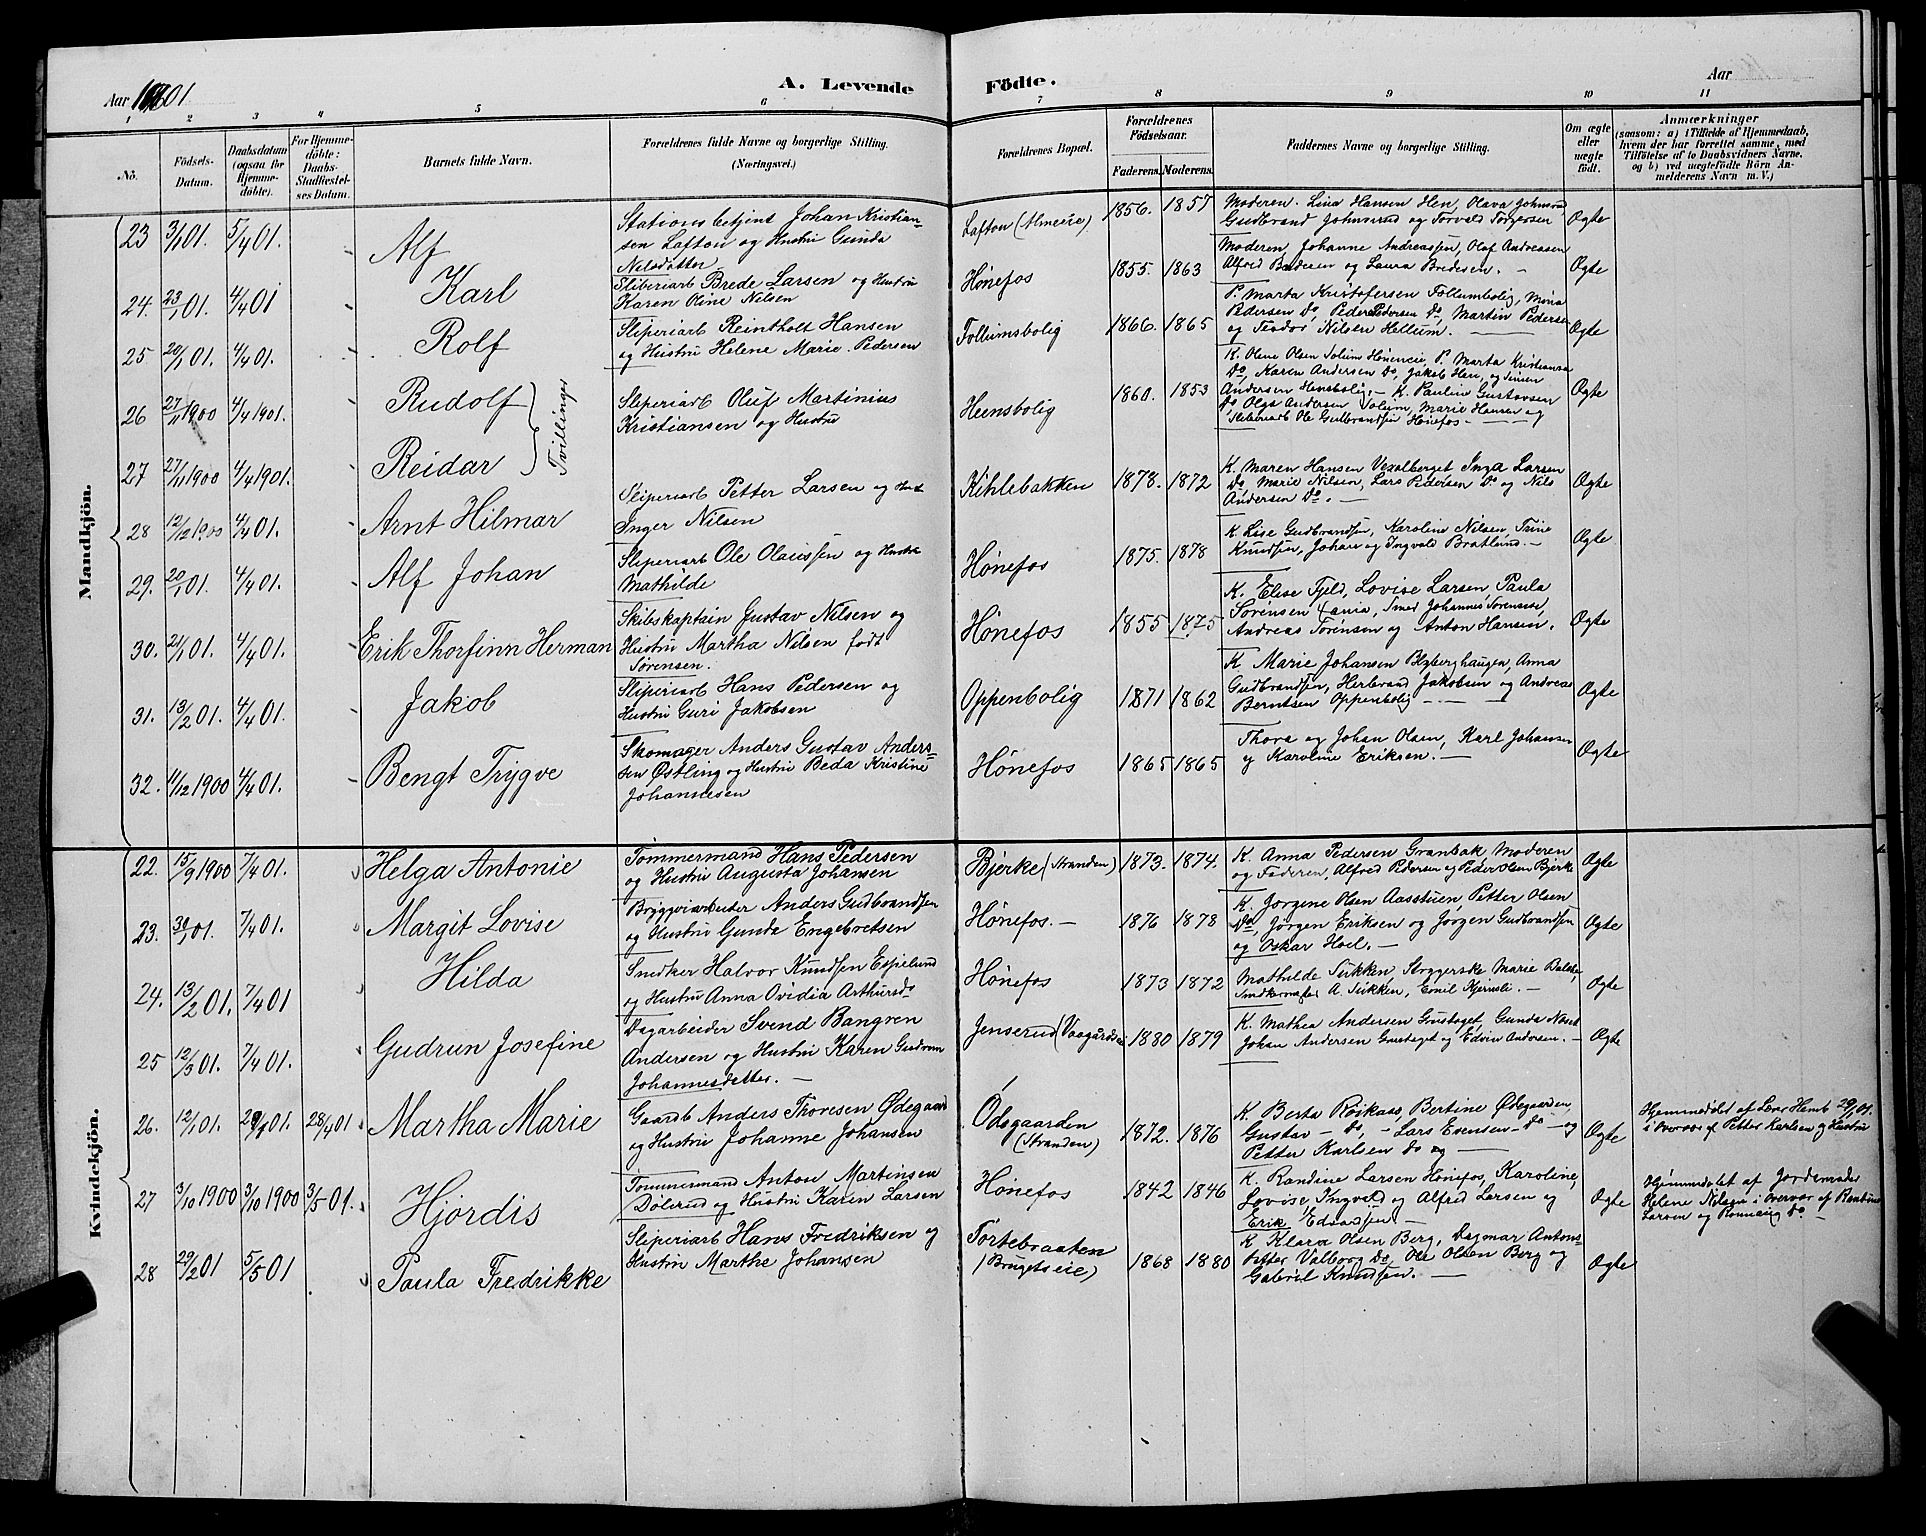 Aar 1901
A. Levende
Födte.
Aar
1 2 3 4 5 6 7 8 9 10 11
No.
Födsels-
Datum.
Daabsdatum
(ogsaa for
Hjemme-
döbte).
For Hjemme-
döbte:
Daabs-
Stadfæstel-
ses Datum.
Barnets fulde Navn.
Forældrenes fulde Navne og borgerlige Stilling.
(Næringsvei.)
Forældrenes Bopæl.
Forældrenes
Födselsaar.
Faderens. Moderens.
Faddernes Navne og borgerlige Stilling.
Om ægte
eller
uægte
født.
Anmærkninger
(saasom: a) i Tilfælde af Hjemmedaab,
hvem der har forrettet samme, med
Tilföielse af to Daabsvidners Navne,
og b) ved uægtefödte Börn An-
melderens Navn m. V.)
Mandkjön.
23 3/1 01. 5/4 01. Alf
Stationsbetjent Johan Kristian-
sen Lafton og Hustru Gunda
Nilsdatter
Lafton (Almeeie) 1856. 1857
Moderen. Lina Hansen Hen, Olava Johnsrud
Gudbrand Johnsrud og Torvald Torgersen
Ægte
24. 23/1 01. 4/4 01 Karl
Sliberiarb Brede Larsen og Hustru
Karen Oline Nilsen
Hønefos 1855. 1863
Moderen, Johanne Andreassen, Olaf Andreasen
Alfred Bredesen og Laura Bredesen. -
Ægte
25 20/1 01. 4/4 01. Rolf
Sliperiarb Reintholt Hansen
og Hustru Helene Marie Pedersen
Follumsbolig 1866. 1865
P. Marta Kristofersen Follumbolig, Mina
Pedersen Do, Peder Pedersen Do, Martin Pedersen
og Teodor Nilsen Hellum.
Ægte
26 27/11 1900 4/4 1901. Rudolf
Tvillinger
Sliperiarb Oluf Martinius
Kristiansen og Hustru
Heensbolig 1860. 1853
K. Olene Olsen Solum Høneneie, P. Marta Kristiansen
Do, Karen Andersen Do, Jakob Hen, og Simen
Andersen Hensbolig. - K. Pauline Gustavsen
Do Olga Andersen Solum, Marie Hansen og
Sliberiarb Ole Gulbrandsen Hønefos.
Ægte
27 27/11 1900 4/4 1901. Reidar
28 12/12 1900 4/4 01. Arnt Hilmar
Sliperiarb Petter Larsen og Hust
Inger Nilsen
Kihlebakken 1878. 1872
K. Maren Hansen Vexalberget Inga Larsen
Do, Marie Nilsen, Lars Pedersen Do og Nils
Andersen Do. -
Ægte
29. 20/1 01. 4/4 01. Alf Johan
Sliperiarb Ole Olaussen og Hustru
Mathilde
Hønefos 1875. 1878
K. Lise Gudbrandsen, Karoline Nilsen, Trine
Knudsen, Johan og Ingvald Bratlund. -
Ægte
30. 21/1 01. 4/4 01. Erik Thorfinn Herman
Skibskaptain Gustav Nilsen og
Hustru Martha Nilsen født
Sørensen.
Hønefos 1855 1875
K. Elise Fjeld, Lovise Larsen, Paula
Sørensen, Smed Johannes Sørensen,
Andreas Sørensen og Anton Hansen.
Ægte
31. 13/2 01. 4/4 01. Jakob
Sliperiarb Hans Pedersen og
Hustru Guri Jakobsen
Oppenbolig 1871 1862
K Marie Johansen Blyberghaugen, Anna
Gudbrandsen, Herbrand Jakobsen og Andreas
Berntsen Oppenbolig
Ægte
32. 11/12 1900 4/4 01. Bengt Trygve
Skomager Anders Gustav Anders-
sen Östling og Hustru Beda Kristine
Johannesen
Hönefos 1865 1865
Thora og Johan Olsen, Karl Johansen
og Karoline Eriksen. -
Ægte
Kvindekjön.
22. 15/9 1900 7/4 01. Helga Antonie
Tömmermand Hans Pedersen
og Hustru Augusta Johansen
Bjerke (Stranden) 1873. 1874.
K. Anna Pedersen Granbak Moderen
og Faderen, Alfred Pedersen og Peder Olsen Bjerke
Ægte
23. 30/1 01. 7/4 01. Margit Lovise
Bryggeriarbeider Anders Gudbrandsen
og Hustru Gunda Engebretsen
Hønefos. - 1876 1878
K. Jörgine Olsen Aasstuen, Petter Olsen
Do, Jörgen Eriksen og Jørgen Gudbrandsen
og Oskar Hoel. -
Ægte
24. 13/2 01. 7/4 01 Hilda
Snedker Halvor Knudsen Espelund
og Hustru Anna Ovidia Arthursd.
Hønefos 1873 1872
Mathilde Sukken, Stryggerske Marie
Snedkermester A. Sukken, Emil Kjernsli. -
Ægte
25 12/3 01. 7/4 01. Gudrun Josefine
Dagarbeider Svend Bangren
Andersen og Hustru Karen Gudrun
Johannesdatter. -
Jenserud (Vaagaardseie 1880 1879
K. Mathea Andersen Grustaget, Gunda
Johan Andersen Grustaget og Edvin Andersen. -
Ægte
26. 12/1 01. 29/1 01. 28/4 01 Martha Marie
Gaardb Anders Thoresen Ödegaard
og Hustru Johanne Johansen
Ödegaarden
(Stranden) 1872. 1876
K Berta Röikaas, Bertine Ödegaarden,
Gustav - Do, - Lars Evensen - Do - og
Petter Karlsen Do og
Ægte
Hjemmedöbt af Lars Hamb 29/1 01.
i Overvær af Petter Karlsen og Hustru
27 3/10 1900 3/10 1900 3/5 01. Hjördis
Tömmermand Anton Martinsen
Dölerud og Hustru Karen Larsen
Hønefos 1842 1846
K. Randine Larsen Hönefos, Karoline,
Lovise, Ingvald og Alfred Larsen og
Erik Edvardsen -
Ægte
Hjemmedöbt af Jordemoder
Helene Nilsen i Overvær af Randine
Larsen og Ronnaug Do -
28 29/2 01 5/5 01 Paula Fredrikke
Sliperiarb Hans Fredriksen og
Hustru Marthe Johansen
Tortebraaten
(Brugetseie) 1868 1880
K Klara Olsen Berg, Dagmar Antons-
datter Valborg Do, Ole Olsen Berg og
Gabriel Knudsen. -
Ægte